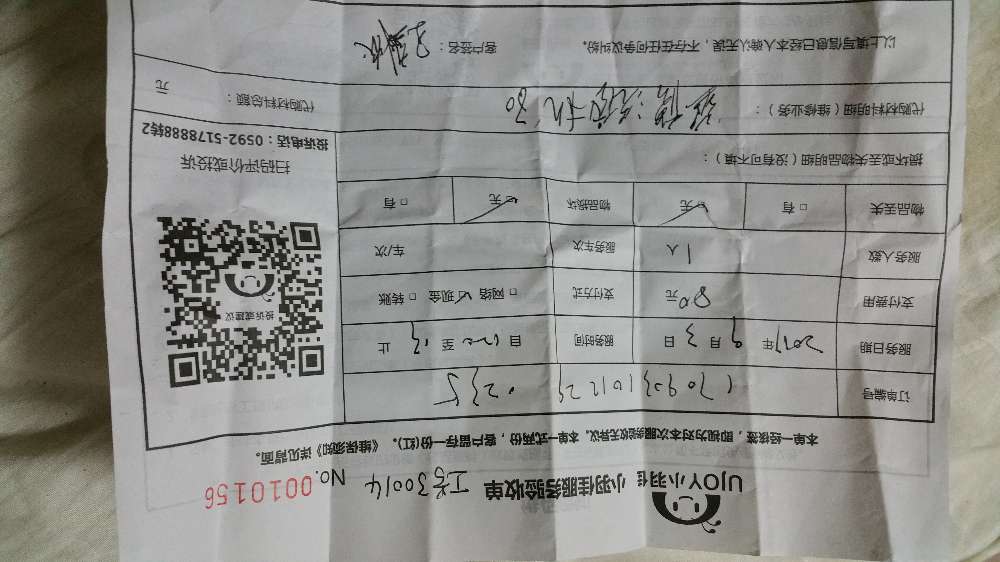 UJOY小羽佳 小羽佳服务验收单 工号30014 No. 0010156
本单一经核签，即视为对本次服务验收无异议。本单一式两份，客户留存一份(红)。《维保须知》详见背面。
订单编号
服务日期 2017年 9月 3日 服务时间 自 至 止
支付费用 80元 支付方式 □ 网络 ☑ 现金 □ 转账
服务人数 1人 服务车次 车/次
物品丢失 □ 有 ☑ 无 物品损坏 ☑ 无 □ 有
损坏或丢失物品明细（没有可不填）：
代购材料明细（维修业务）： 80
代购材料总额： 元
以上填写信息已经本人确认无误，不存在任何争议纠纷。 客户签名：
投诉或建议
扫码评价或投诉
投诉电话：0592-5178888转2